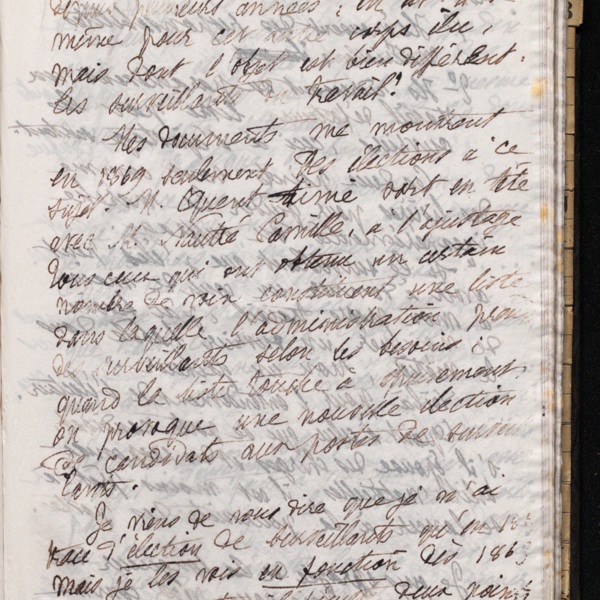 depuis plusieurs années; en est
même pour cet autre corps élu,
mais dont l'objet est bien différent:
les surveillants du travail?
Mes documents me montrent
en 1869 seulement des élections à ce
sujet. M. Quent aimé sort en tête
avec M. Camille, à l'ajustage
Tous ceux qui ont obtenu un certain
nombre de voix constituent une liste
dans laquelle l'administration prend
de surveillants selon les besoins;
quand la liste touche à
on provoque une nouvelle élection
de candidats aux postes de surveil
lants.
Je viens de vous dire que je n'ai
l'élection de surveillants qu'en
mais je les vois en fonction dès 186
deux